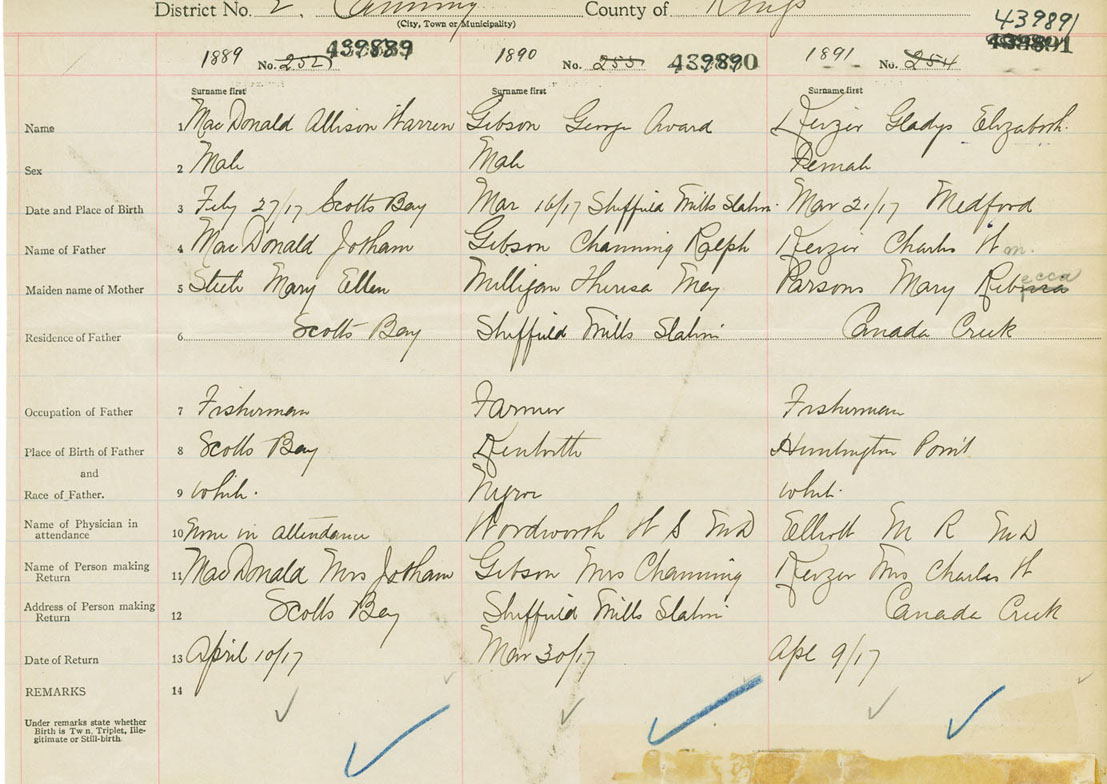 District No. 2. Canning County of Kings
(City, Town or Municipality)
439891
1889 No. 252 439889 1890 No. 253 439890 1891 No. 254 439891
Surname first Surname first Surname first
Name 1 MacDonald Allison Warren Gibson George Avard Keizer Gladys Elizabeth.
Sex 2 Male Male Female
Date and Place of Birth 3 Feby 27/17 Scotts Bay Mar 10/17 Sheffield Mills Station Mar 21/17 Medford
Name of Father 4 MacDonald Jotham Gibson Channing Ralph Keizer Charles W m.
Maiden name of Mother 5 Steele Mary Ellen Milligan Theresa May Parsons Mary Rebecca
Residence of Father 6 Scotts Bay Sheffield Mills Station Canada Creek
Occupation of Father 7 Fisherman Farmer Fisherman
Place of Birth of Father 8 Scotts Bay Kentville Huntington Point
and
Race of Father. 9 White. Negro White.
Name of Physician in
attendance 10 None in attendance Wordworth W S MD Elliott M R MD
Name of Person making
Return 11 MacDonald Mrs Jotham Gibson Mrs Channing Keizer Mrs Charles W
Address of Person making
Return 12 Scotts Bay Sheffield Mills Station Canada Creek
Date of Return 13 April 10/17 Mar 30/17 Apl 9/17
REMARKS 14
Under remarks state whether
Birth is Twin, Triplet, Ille-
gitimate or Still-birth.